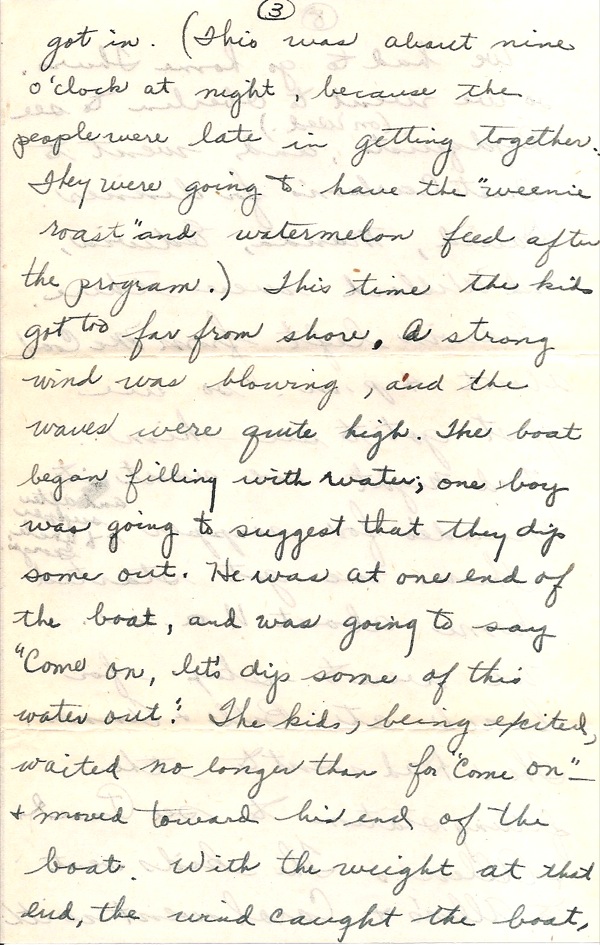 3
got in. (This was about nine
o'clock at night, because the
people were late in getting together.
They were going to have the "weenie
roast" and watermelon feed after
the program.) This time the kids
got too far from shore. A strong
wind was blowing, and the
waves were quite high. The boat
began filling with water; one boy
was going to suggest that they dip
some out. He was at one end of
the boat, and was going to say
"Come on, let's dip some of this
water out." The kids, being excited,
waited no longer than for "Come on" –
+ moved toward his end of the
boat. With the weight at that
end, the wind caught the boat,